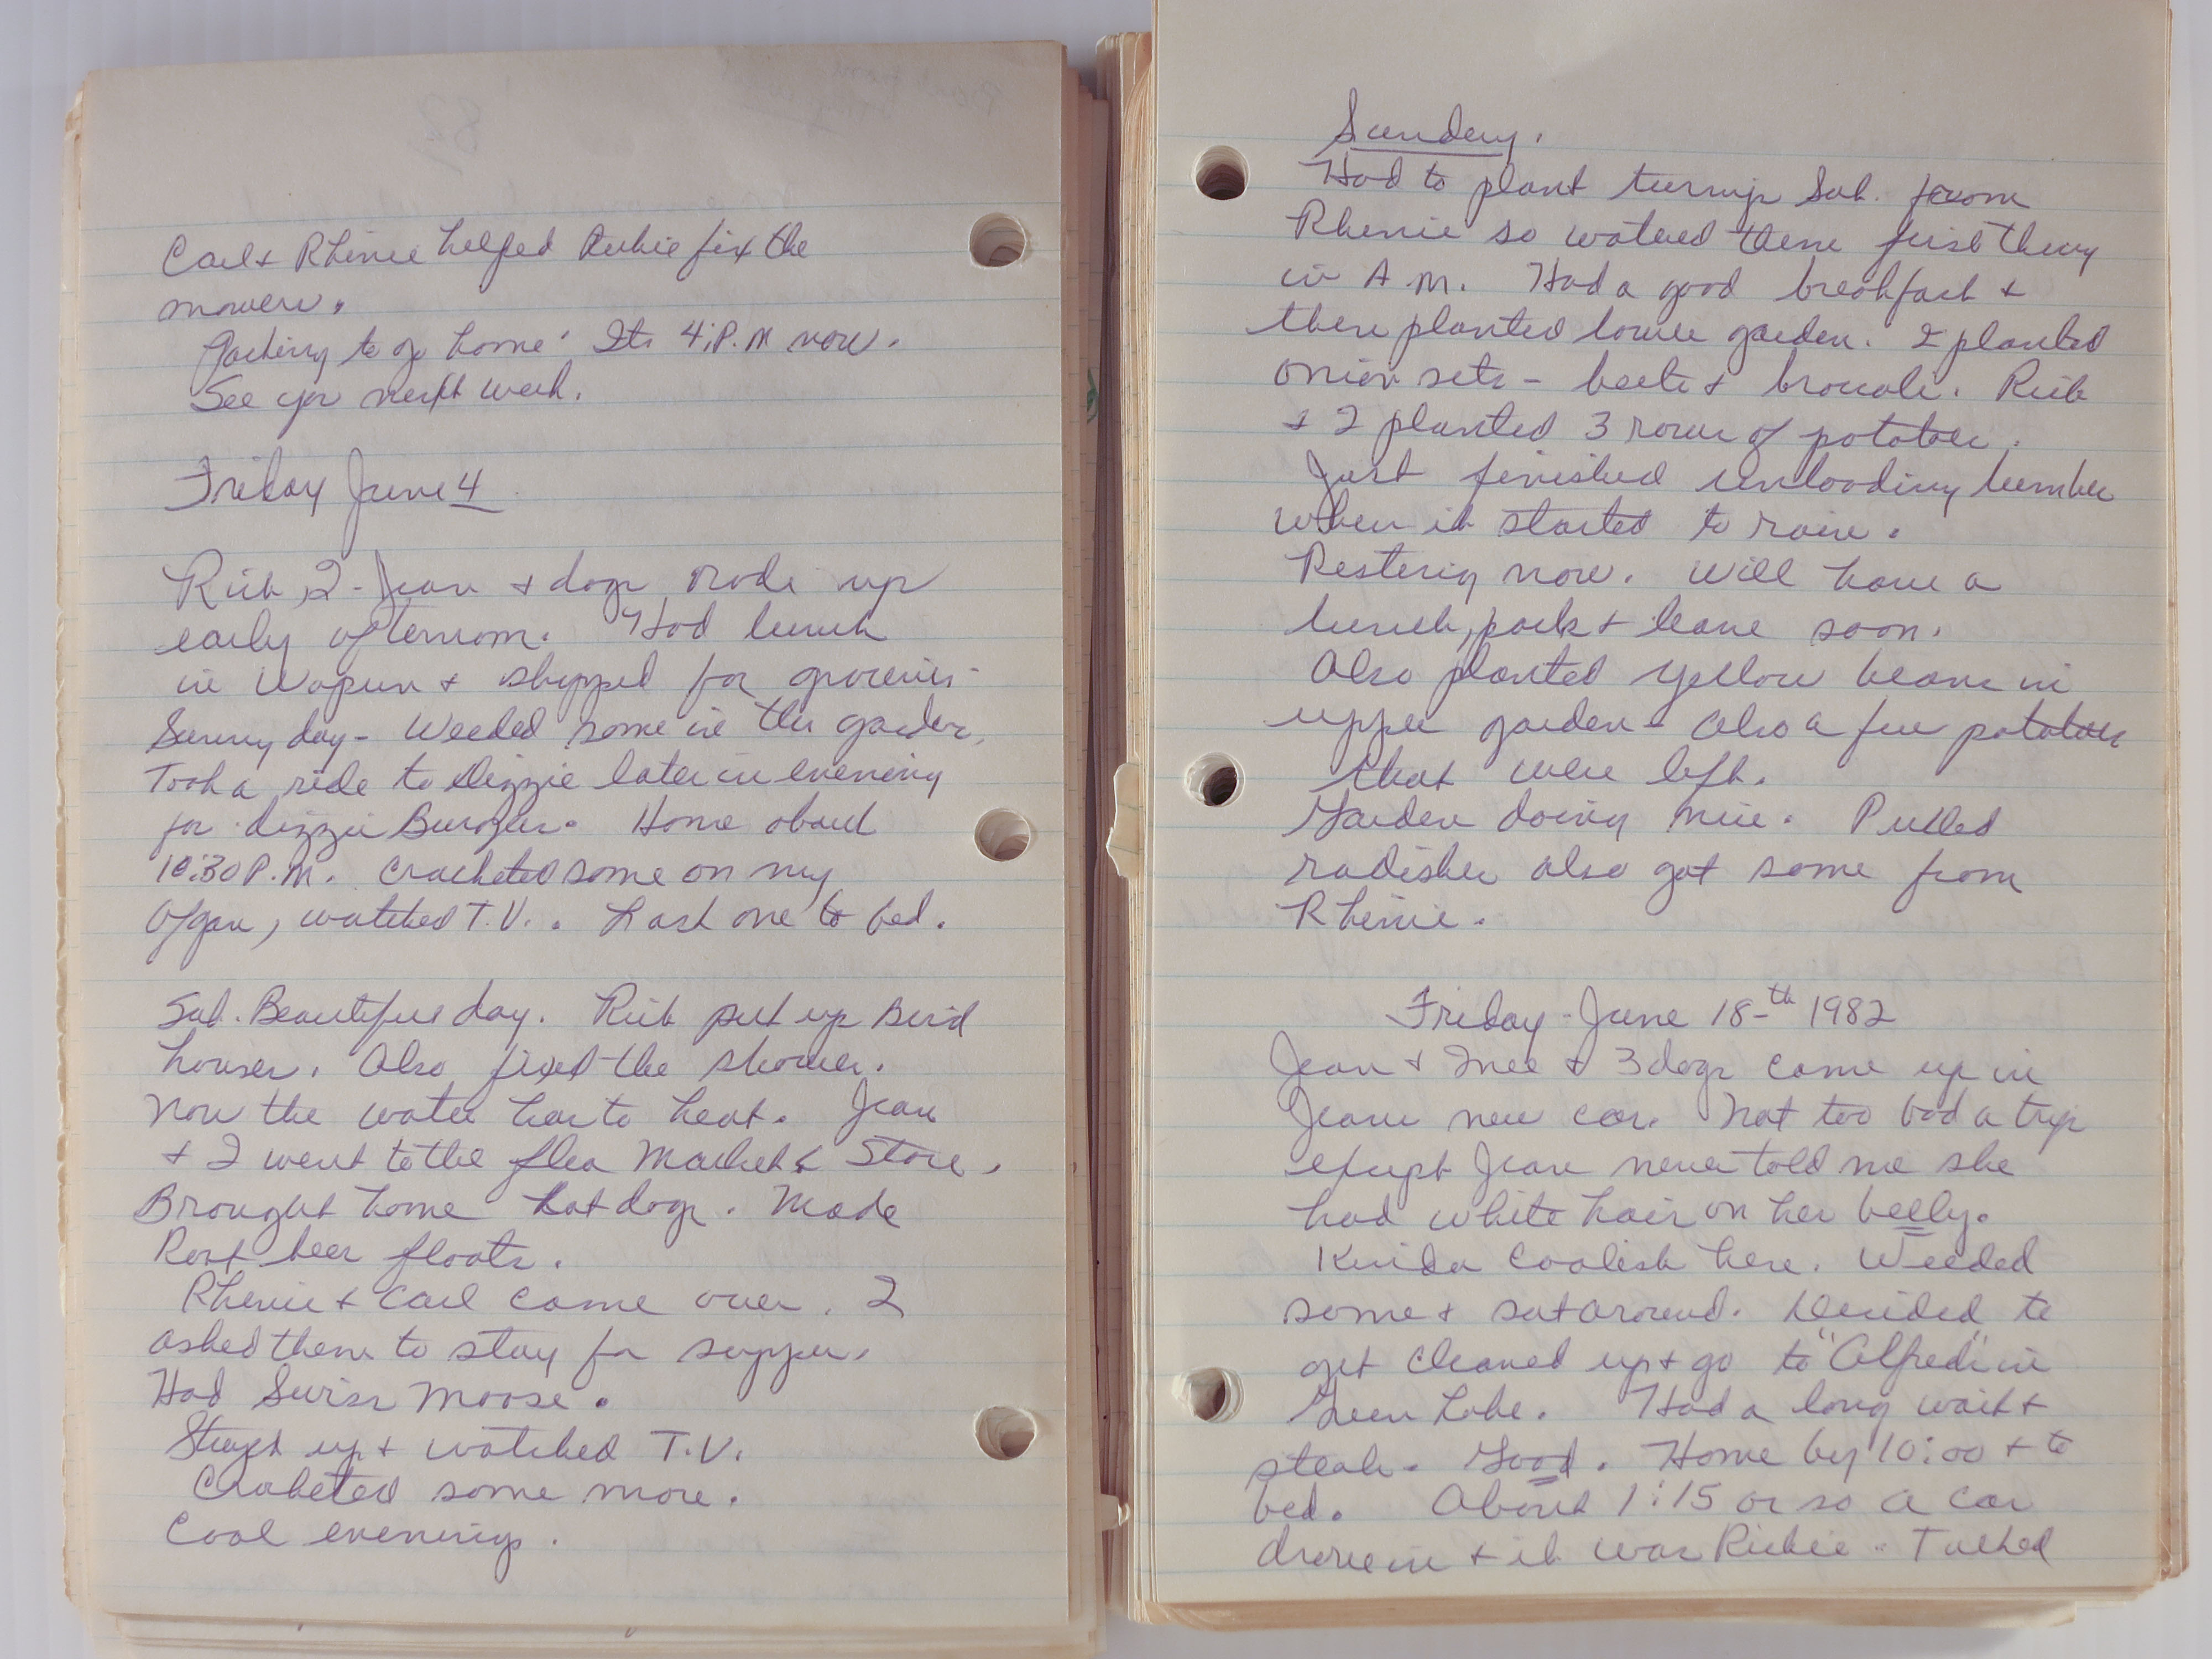 Carl + Rhenie helped Richie fix the
mower.
Packing to go home. Its 4:P.M now.
See you next week.
Friday June 4
Rich, I - Jean + dogs rode up
early afternoon. Had lunch
in Wapun + shopped for groceries -
Sunny day - Weeded some in the garden,
Took a ride to Dizzie later in evening
for dizzie Burgers. Home about
10:30 P.M. Cracheted some on my
Afgan, watched T.V.. Last one to bed.
Sat. Beautiful day. Rich put up Bird
houses. Also fixed the shower.
Now the water has to heat. Jean
+ I went to the flea Market & Store,
Brought home hot dogs. Made
Root beer floats.
Rhenie + Carl came over. I
asked them to stay for supper.
Had Swiss Moose.
Stayed up + watched T.V.
Crocheted some more.
Cool evenings.
Sunday.
Had to plant turnips Sat. from
Rhenie so watered them first thing
in A.M. Had a good breakfast +
then planted lower garden. I planted
onion sets - beets + brocole. Rich
+ I planted 3 rows of potatoes.
Just finished unloading lumber
when it started to rain.
Resting now. Will have a
lunch, pack + leave soon.
Also planted yellow beans in
upper garden - also a few potatoes
that were left.
Garden doing nice. Pulled
radishes also got some from
Rhenie.
Friday - June 18-th 1982
Jean + Mee + 3 dogs came up in
Jeans new car. Not too bad a trip
except Jean never told me she
had white hair on her belly.
Kinda coolish here. Weeded
some + sat around. Decided to
get cleaned up + go to "Alfredi" in
Green Lake. Had a long wait +
steak. Good. Home by 10:00 + to
bed. About 1:15 or so a car
drove in + it was Richie. Talked